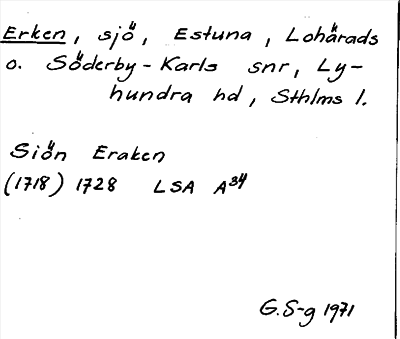 Erken, sjö, Estuna, Lohärads
o. Söderby-Karls snr, Ly-
hundra hd, Sthlms l.
Siön Eraken
(1718) 1728 LSA A34
G.S-g 1971